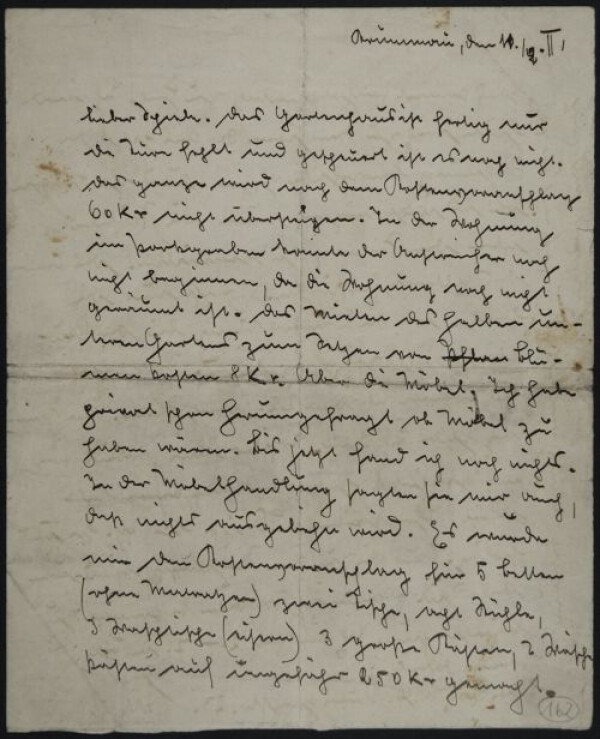 Krummau, den 11./2. II,
lieber Schiele. Das Gartenhaus ist fertig nur
die Türe fehlt und gescheuert ist es noch nicht.
das ganze wird nach dem Kostenvoranschlag
60 Kr nicht übersteigen. In der Wohnung
im Parkgraben konnte der Anstreicher noch
nicht beginnen, da die Wohnung noch nicht
geräumt ist. Das Mieten des halben un-
teren Gartens zum Setzen von Blu-
men kosten 8 Kr. Aber die Möbel. Ich habe
privat schon herumgefragt ob Möbel zu
haben wären. Bis jetzt fand ich noch nichts.
In der Möbelhandlung sagten sie mir auch,
daß nichts ausgeliehn wird. Es wurde
mir den Kostenvoranschlag für 5 betten
(ohne Matratzen) zwei Tische, acht Stühle,
3 Waschtische (eisern) 3 große Kästen, 2 Wäsche
kästen auf ungefähr 250 Kr gemacht.
162